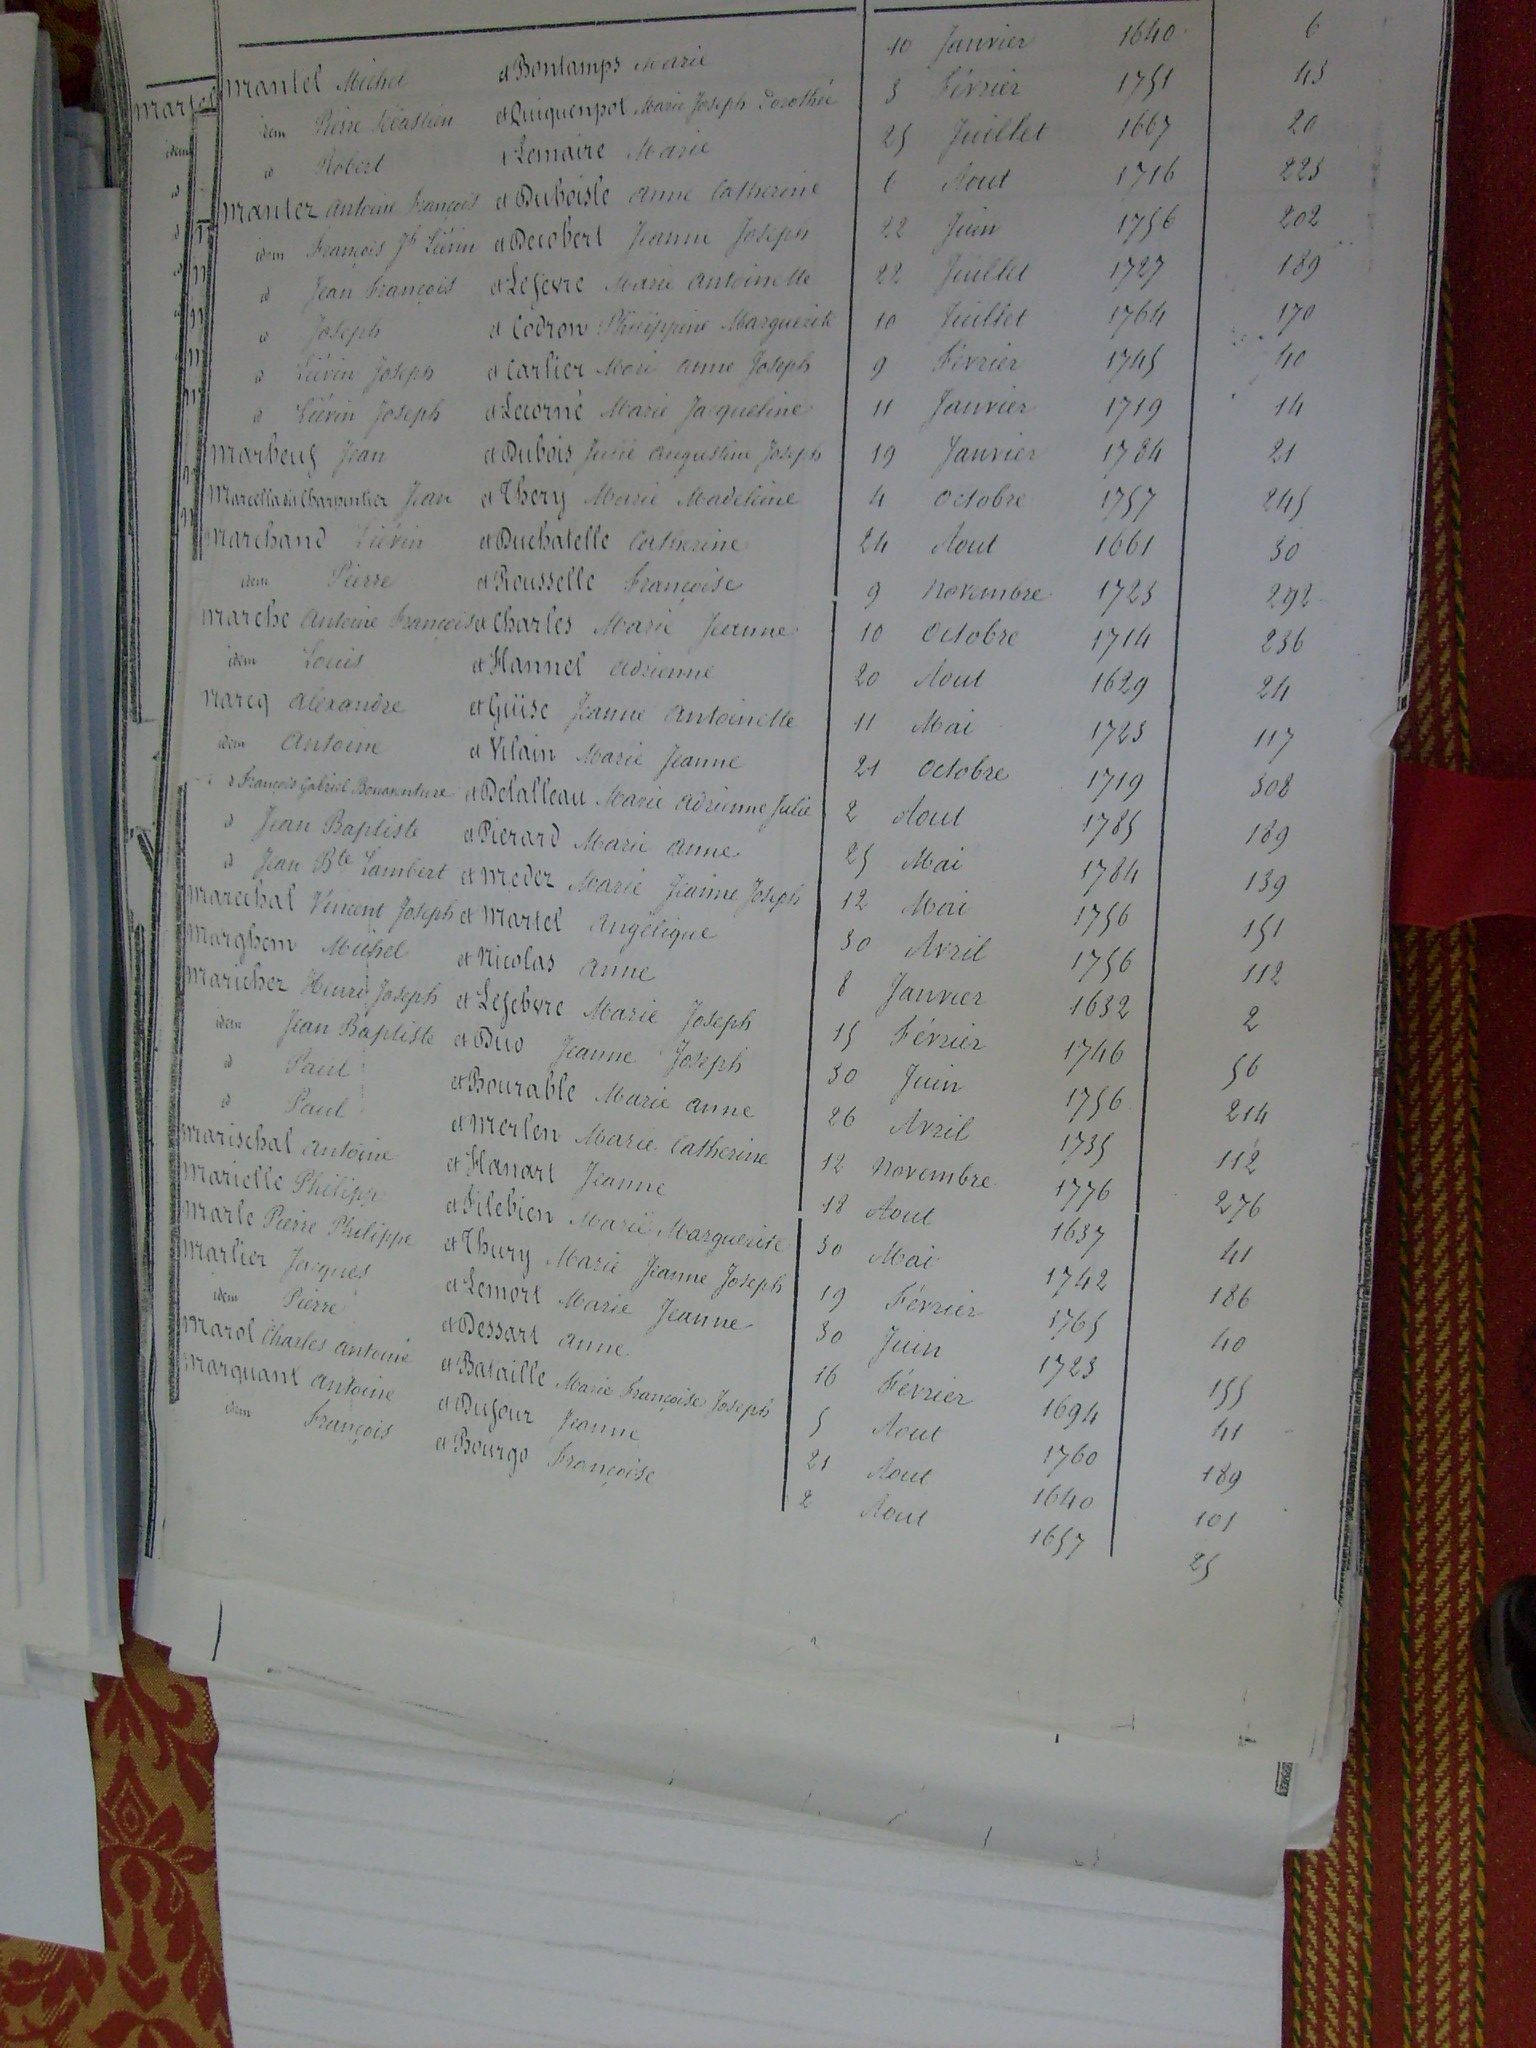 Mantel Michel et Bontamps Marie 10 Janvier 1640 6
idem Pierre Sébastien et Quiquenpot Marie Joseph Dorothée 3 Février 1751 43
d Robert et Lemaire Marie 25 Juillet 1667 20
Mantez Antoine François et Duboisle Anne Catherine 6 Aout 1716 223
idem François Jh Liévin et Decobert Jeanne Joseph 22 Juin 1756 202
d Jean François et Lefevre Marie Antoinette 22 Juillet 1727 189
d Joseph et Codron Philippine Marguerite 10 Juillet 1764 170
d Liévin Joseph et Carlier Marie Anne Joseph 9 Février 1745 40
d Liévin Joseph et Lecorné Marie Jacqueline 11 Janvier 1719 14
Marbeuf Jean et Dubois Julie Augustine Joseph 19 Janvier 1784 21
Marcella dit Charpentier Jean et Thery Marie Madeleine 4 Octobre 1757 245
Marchand Liévin et Duchatelle Catherine 24 Aout 1661 30
idem Pierre et Rousselle Françoise 9 Novembre 1723 292
Marche Antoine François et Charles Marie Jeanne 10 Octobre 1714 236
idem Louis et Hannel Adrienne 20 Aout 1629 24
Marcq Alexandre et Guïse Jeanne Antoinette 11 Mai 1723 117
idem Antoine et Vilain Marie Jeanne 21 Octobre 1719 308
d François Gabriel Bonaventure et Delalleau Marie Adrienne Julie 2 Aout 1785 189
d Jean Baptiste et Pierard Marie Anne 25 Mai 1784 139
d Jean Bte Lambert et Medez Marie Jeanne Joseph 12 Mai 1756 151
Marechal Vincent Joseph et Martel Angélique 30 Avril 1756 112
Marghem Michel et Nicolas Anne 8 Janvier 1632 2
Marichez Henri Joseph et Lefebvre Marie Joseph 15 Février 1746 56
idem Jean Baptiste et Duo Jeanne Joseph 30 Juin 1756 214
d Paul et Bourable Marie Anne 26 Avril 1735 112
d Paul et Merlen Marie Catherine 12 Novembre 1776 276
Marischal Antoine et Hanart Jeanne 18 Aout 1637 41
Marielle Philippe et Filebien Marie Marguerite 30 Mai 1742 186
Marle Pierre Philippe et Thury Marie Jeanne Joseph 19 Février 1765 40
Marlier Jacques et Lemort Marie Jeanne 30 Juin 1723 155
idem Pierre et Dessart Anne 16 Février 1694 41
Marol Charles Antoine et Bataille Marie Françoise Joseph 5 Aout 1760 189
Marquant Antoine et Dufour Jeanne 21 Aout 1640 101
idem François et Bourgo Françoise 2 Aout 1657 25
Martel
idem
d